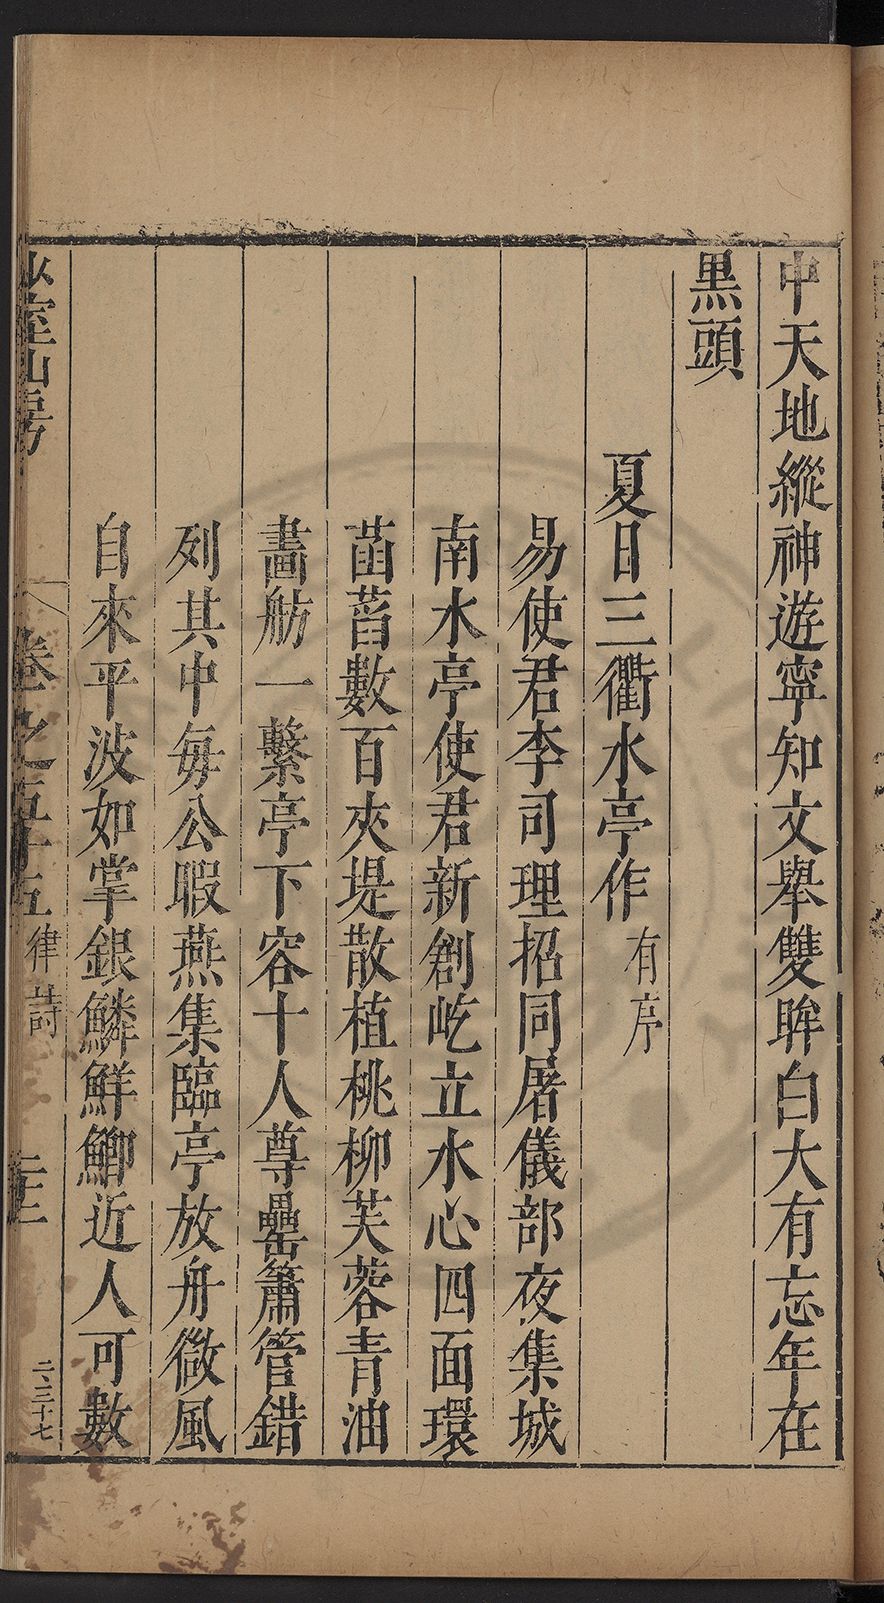 中天地縱神遊寧知文舉雙眸白大有忘年在
黑頭
夏日三衢水亭作有序
易使君李司理招同屠儀部夜集城
南水亭使君新創屹立水心四面環
菡萏數百夾堤散植桃柳芙蓉青油
畵舫一繫亭下容十人尊罍簫管錯
列其中每公暇燕集臨亭放舟微風
自來平波如掌銀鱗鮮鯽近人可數
少室山房
卷之五十五律詩
二十二
二、三十七